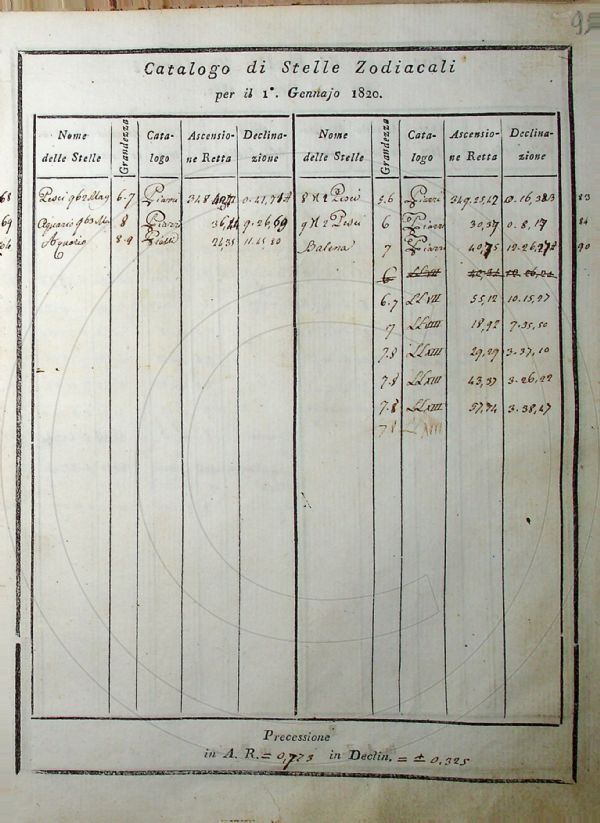 Catalogo di Stelle Zodiacali
per il 1°. Gennajo 1820.
Nome delle Stelle Grandezza Cata- logo Ascensio- ne Retta Declina- zione Nome delle Stelle Grandezza Cata- logo Ascensio- ne Retta Declina- zione
68 Pesci 962 May 6.7 Piazzi 348. 0.41, 8 H 2 Pesci 5.6 Piazzi 349.25,47 0.16, 83
69 Aquario 963 May 8 Piazzi 36, 9.26,69 9 H 2 Pesci 6 Piazzi 32,37 0.8,17 84
Aquario 8.9 Piazzi 24,35 11.45.50 Balena 7 Piazzi 40,75 12.26, 90
6 LLVII
6.7 LLVII 55,12 10.15,27
7 LLXIII 18,92 7.35,50
7.8 LLXIII 29,29 3.37,10
7.8 LLXIII 43,37 3.26,22
7.8 LLXIII 57,74 3.38,47
7.8 LLXIII
Precessione
in A. R. = 0,773 in Declin. = ± 0,325